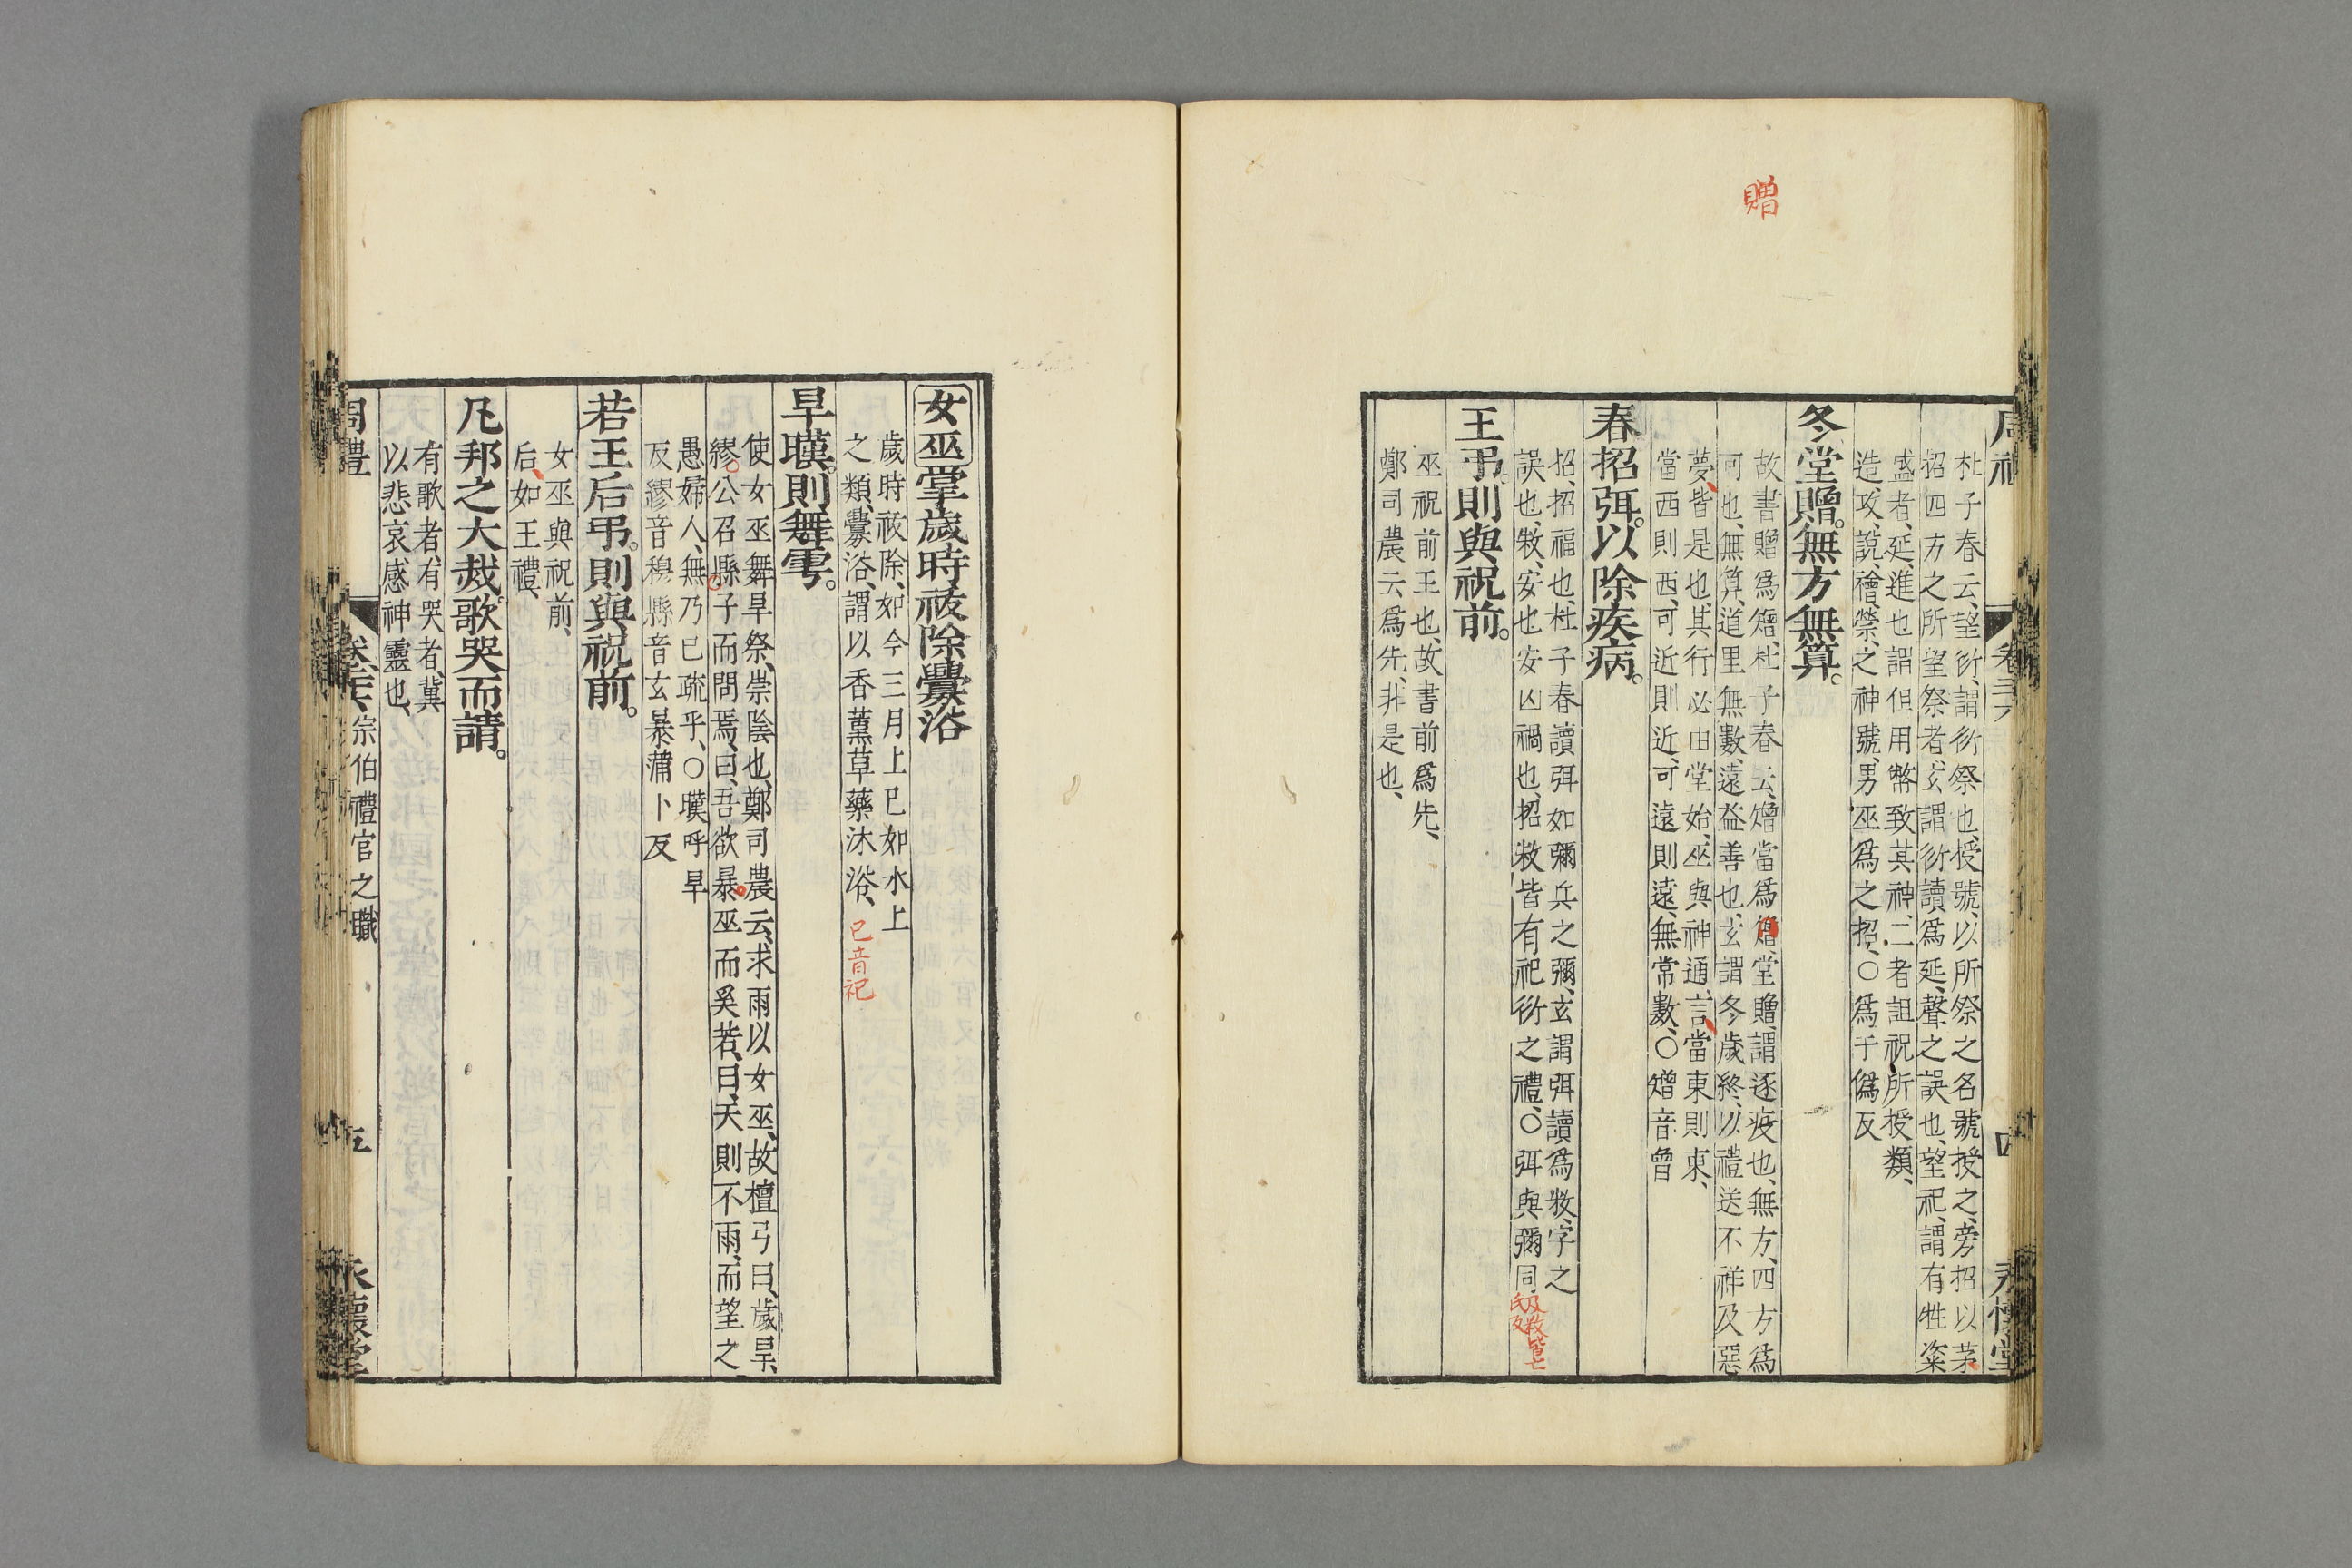 贈
杜子春云、望衍、謂衍祭也、授號、以所祭之名號授之、旁招以茅
招四方之所望祭者、玄謂衍讀爲延、聲之誤也、望祀、謂有牲粢
盛者、延、進也、謂但用幣致其神、二者詛祝所授類、
造、攻、說、禬、禜、之神號、男巫爲之招、〇爲于僞反
冬堂贈。無方無算。
故書贈爲矰、杜子春云、矰當爲贈、堂贈、謂逐疫也、無方、四方爲
可也、無算、道里無數、遠益善也、玄謂冬歲終、以禮送不祥及惡
夢、皆是也、其行必由堂始、巫與神通、言當東則東、
當西則西、可近則近、可遠則遠、無常數、〇矰音曾
春招弭。以除疾病。
招、招福也、杜子春讀弭如彌兵之彌、玄謂弭讀爲敉、字之
誤也、敉、安也、安凶禍也、招敉皆有祀衍之禮、〇弭與彌同
及敉皆亡
氏反
王弔。則與祝前。
巫祝前王也、故書前爲先、
鄭司農云爲先、非是也、
周禮 卷二十六 四 永懷堂
女巫掌歲時祓除釁浴
歲時祓除、如今三月上巳如水上
之類、釁浴、謂以香薰草藥沐浴、
巳音祀
旱暵。則舞雩。
使女巫舞旱祭、崇陰也、鄭司農云、求雨以女巫、故檀弓曰、歲旱、
繆公召縣子而問焉、曰、吾欲暴巫而奚若、曰、天則不雨、而望之
愚婦人、無乃已疏乎、〇暵呼旱
反繆音穆縣音玄暴蒲卜反
若王后弔。則與祝前。
女巫與祝前、
后、如王禮、
凡邦之大烖。歌哭而請。
有歌者、有哭者、冀
以悲哀、感神靈也、
周禮 卷二十六 宗伯禮官之職 五 永懷堂